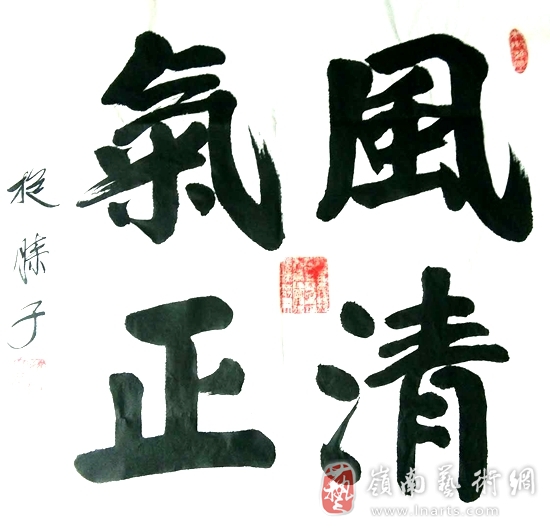 風清
氣正
子
嶺南藝術網
www.lnarts.com